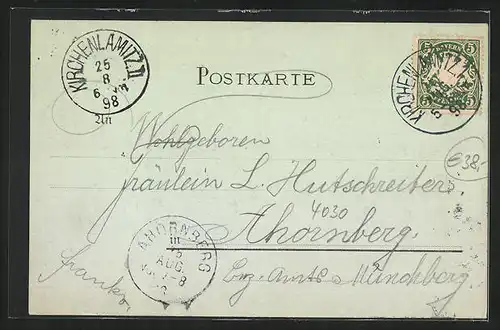 KIRCHENLAMITZ II
25
8
98
POSTKARTE
KIRCHENLAMITZ II
5 5
5 5
An
Wohlgeboren
fräulein L. Hutschreiter
€38,-
4030
Ahornberg.
in
AHORNBERG
AUG.
franko.
Bez.-Amts Münchberg